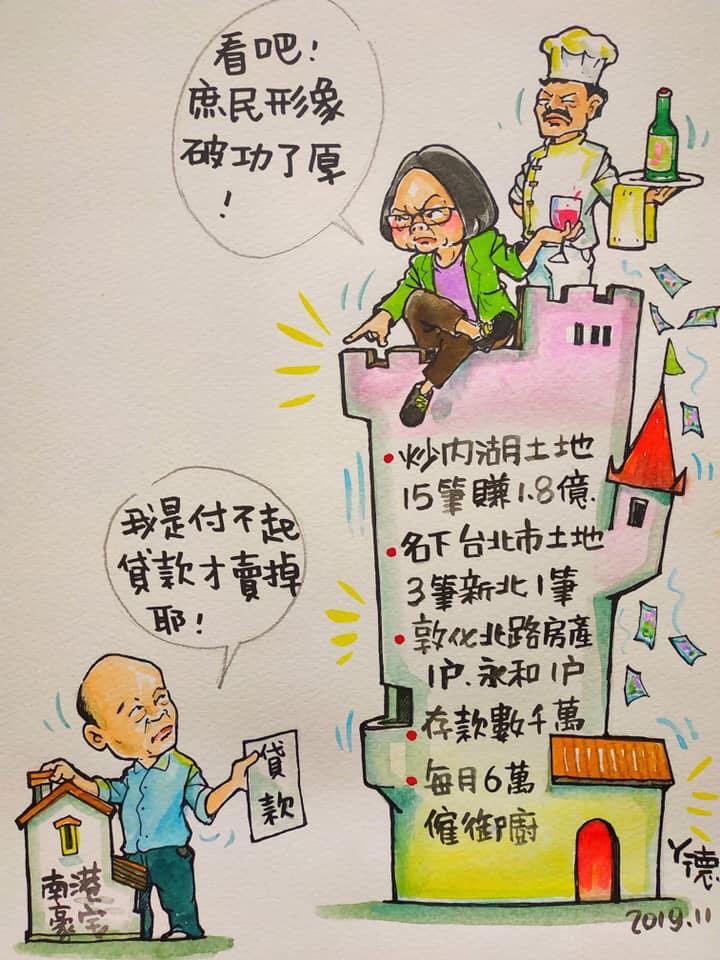 看吧！
庶民形象
破功了厚
！
我是付不起
貸款才賣掉
耶！
貸
款
南港
豪宅
•炒內湖土地
15筆賺1.8億.
•名下台北市土地
3筆新北1筆
•敦化北路房產
1戶.永和1戶
•存款數千萬
•每月6萬
僱御廚
2019.11